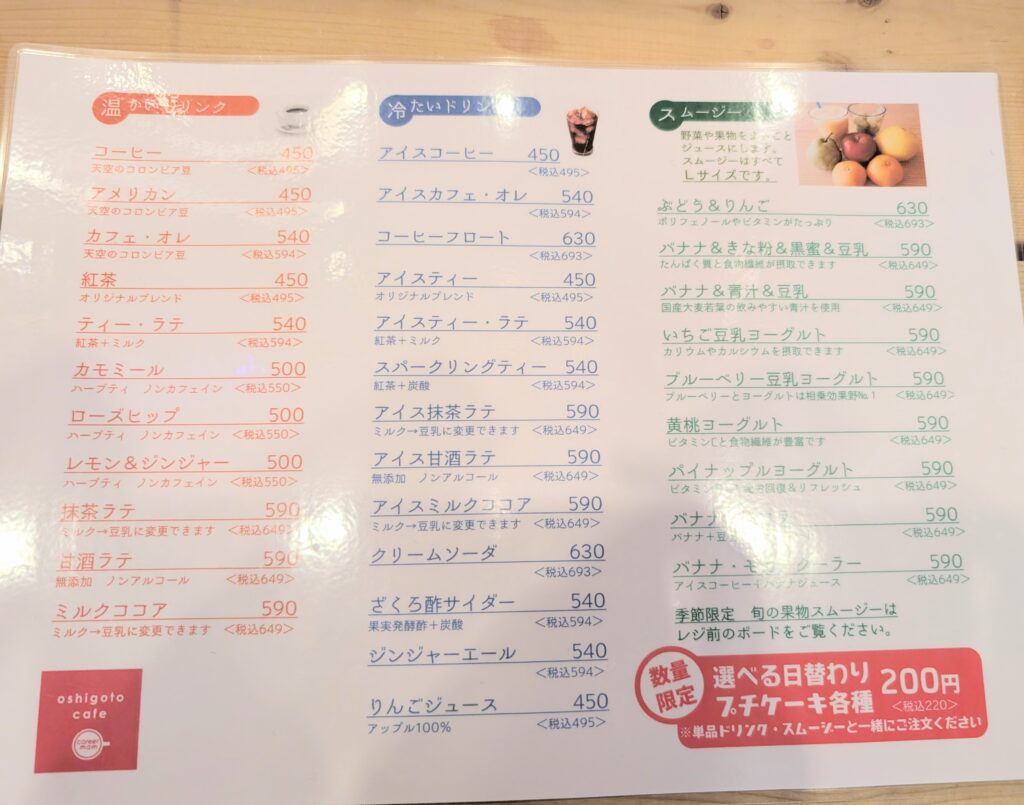 温かいドリンク
コーヒー 450
天空のコロンビア豆 <税込495>
アメリカン 450
天空のコロンビア豆 <税込495>
カフェ・オレ 540
天空のコロンビア豆 <税込594>
紅茶 450
オリジナルブレンド <税込495>
ティー・ラテ 540
紅茶+ミルク <税込594>
カモミール 500
ハーブティ ノンカフェイン <税込550>
ローズヒップ 500
ハーブティ ノンカフェイン <税込550>
レモン&ジンジャー 500
ハーブティ ノンカフェイン <税込550>
抹茶ラテ 590
ミルク→豆乳に変更できます <税込649>
甘酒ラテ 590
無添加 ノンアルコール <税込649>
ミルクココア 590
ミルク→豆乳に変更できます <税込649>
oshigoto
cafe
career
mam
冷たいドリンク
アイスコーヒー 450
<税込495>
アイスカフェ・オレ 540
<税込594>
コーヒーフロート 630
<税込693>
アイスティー 450
オリジナルブレンド <税込495>
アイスティー・ラテ 540
紅茶+ミルク <税込594>
スパークリングティー 540
紅茶+炭酸 <税込594>
アイス抹茶ラテ 590
ミルク→豆乳に変更できます <税込649>
アイス甘酒ラテ 590
無添加 ノンアルコール <税込649>
アイスミルクココア 590
ミルク→豆乳に変更できます <税込649>
クリームソーダ 630
<税込693>
ざくろ酢サイダー 540
果実発酵酢+炭酸 <税込594>
ジンジャーエール 540
<税込594>
りんごジュース 450
アップル100% <税込495>
スムージー
野菜や果物をまるごと
ジュースにします。
スムージーはすべて
Lサイズです。
ぶどう&りんご 630
ポリフェノールやビタミンがたっぷり <税込693>
バナナ&きな粉&黒蜜&豆乳 590
たんぱく質と食物繊維が摂取できます <税込649>
バナナ&青汁&豆乳 590
国産大麦若葉の飲みやすい青汁を使用 <税込649>
いちご豆乳ヨーグルト 590
カリウムやカルシウムを摂取できます <税込649>
ブルーベリー豆乳ヨーグルト 590
ブルーベリーとヨーグルトは相乗効果野№1 <税込649>
黄桃ヨーグルト 590
ビタミンCと食物繊維が豊富です <税込649>
パイナップルヨーグルト 590
ビタミン 回復&リフレッシュ <税込649>
バナナ 590
バナナ+豆 <税込649>
バナナ・モ ーラー 590
アイスコーヒー バナナジュース <税込649>
季節限定 旬の果物スムージーは
レジ前のボードをご覧ください。
数量
限定
選べる日替わり
プチケーキ各種 200円
<税込220>
※単品ドリンク・スムージーと一緒にご注文ください